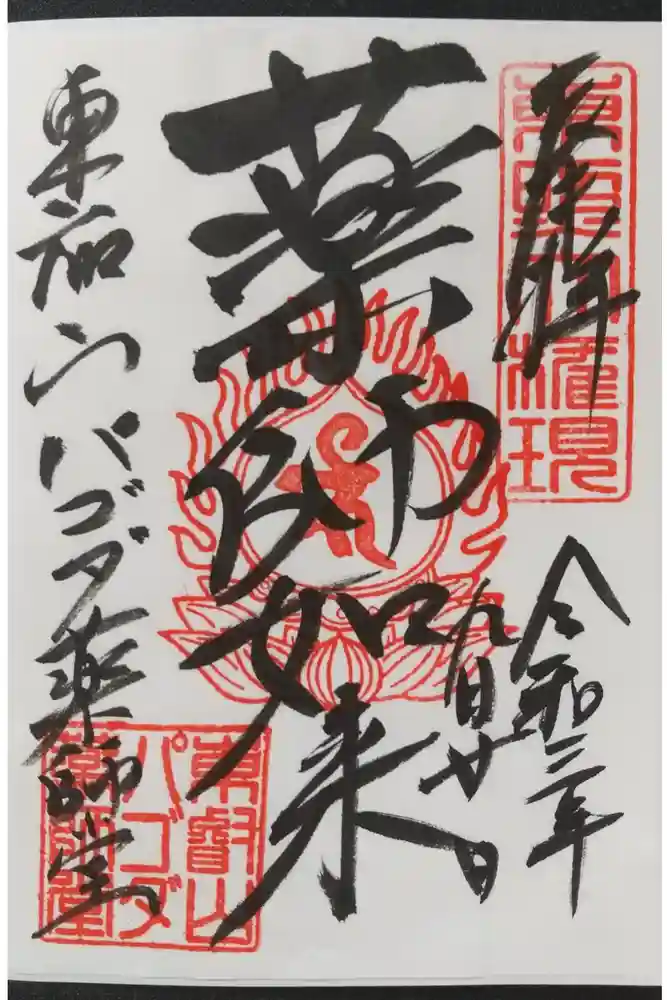 奉拝
東照大権現
令和三年
九月廿日
薬師如来
東叡山パゴダ薬師堂
東叡山
パゴダ
薬師堂